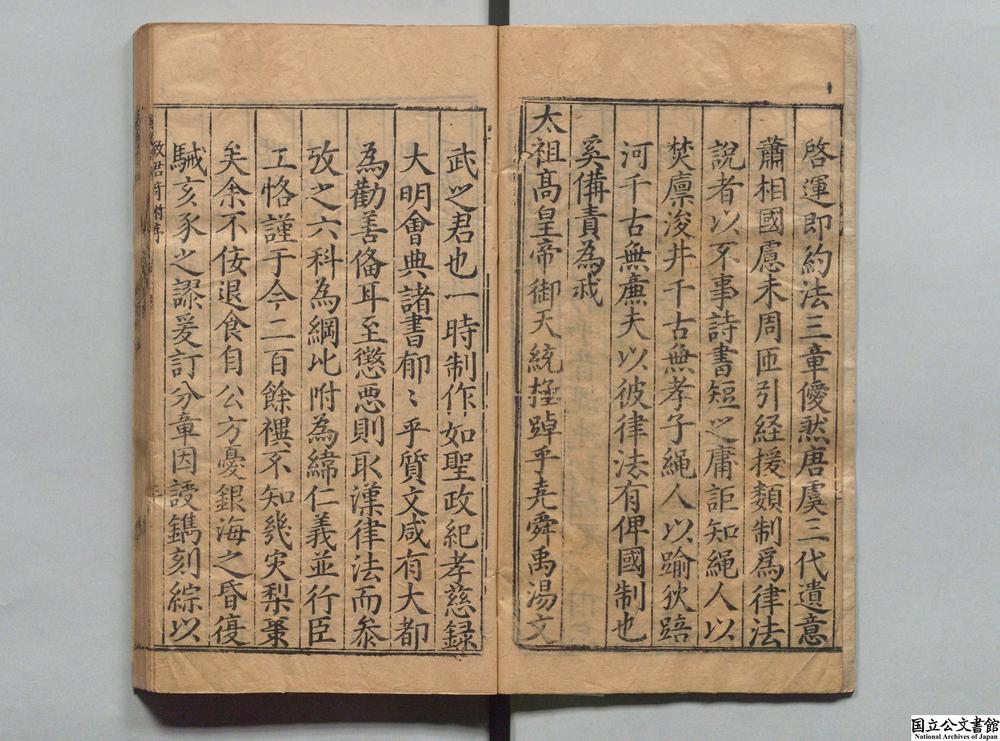 啓運即約法三章優然唐虞三代遺意
蕭相國慮未周匝引経援類制爲律法
說者以不事詩書短之庸詎知繩人以
焚廪浚井千古無孝子繩人以踰狄踣
河千古無廉夫以彼律法有俾國制也
奚備責為戒
太祖高皇帝御天統極踔乎尭舜禹湯文
武之君也一時制作如聖政紀孝慈録
大明會典諸書郁〻乎質文咸有大都
為勸善偹耳至懲悪則取漢律法而叅
攷之六科為綱比附為緯仁義並行臣
工恪謹于今二百餘禩不知幾灾梨棗
矣余不佞退食自公方憂銀海之昏復
駴亥豕之謬爰訂分章因謾鐫刻綜以
国立公文書館
National Archives of Japan